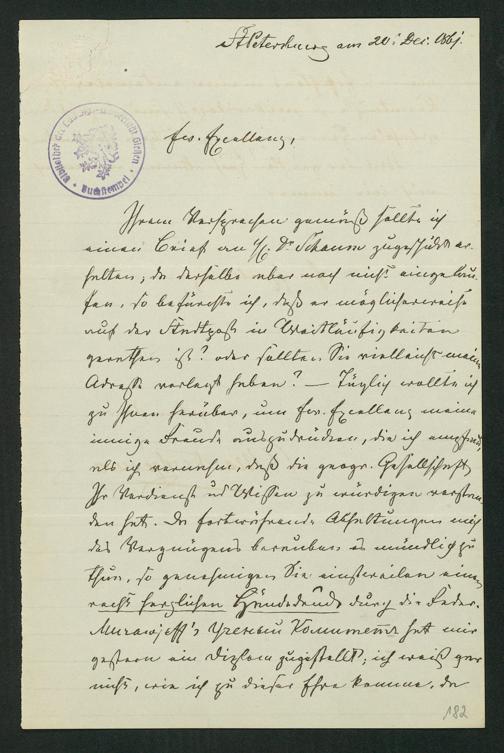 St Petersburg am 20. Dec. 1861.
Bibliothek der Ludwigs-Universität Gießen
Buchstempel
Ew. Excellenz,
Ihrem Versprechen gemäß sollte ich
einen Brief an H. Dr Schaum zugeschickt er-
halten; da derselbe aber noch nicht eingelau-
fen, so befürchte ich, daß er möglicherweise
auf der Stadtpost in Weitläufigkeiten
gerathen ist? oder sollten Sie vielleicht meine
Adresse verlegt haben? — Täglich wollte ich
zu Ihnen herüber, um Ew. Excellenz meine
innige Freude auszudrücken, die ich empfand,
als ich vernahm, daß die geogr. Gesellschaft
Ihr Verdienst und Wissen zu würdigen verstan-
den hat. Da fortwährende Abhaltungen mich
des Vergnügens berauben es mündlich zu
thun, so genehmigen Sie einstweilen einen
recht herzlichen Händedruck durch die Feder.
Murawjeff's Ученый Комитетъ hat mir
gestern ein Diplom zugestellt; ich weiß gar
nicht, wie ich zu dieser Ehre komme, da
182